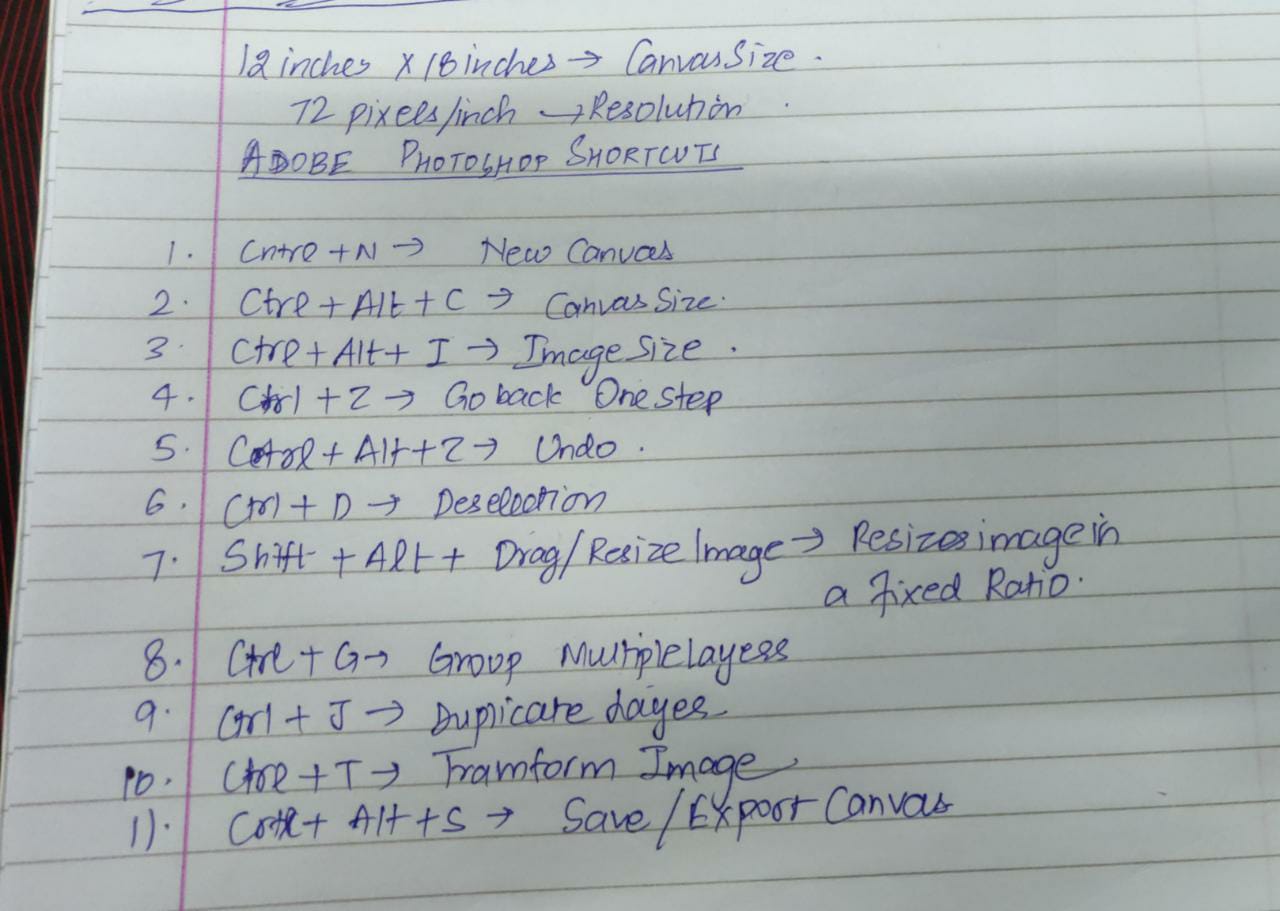 12 inches X 18 inches → Canvas Size.
72 pixels/inch → Resolution.
ADOBE PHOTOSHOP SHORTCUTS
1. Cntrl + N → New Canvas
2. Ctrl + Alt + C → Canvas Size.
3. Ctrl + Alt + I → Image Size.
4. Ctrl + Z → Go back One step
5. Cntrl + Alt + Z → Undo.
6. Ctrl + D → Deselection
7. Shift + Alt + Drag/Resize Image → Resizes image in
a Fixed Ratio.
8. Ctrl + G → Group Multiple layers
9. Ctrl + J → Duplicate Layer
10. Ctrl + T → Tramform Image
11. Cntrl + Alt + S → Save/Export Canvas